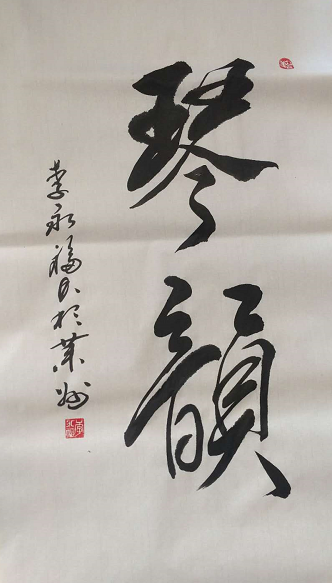 琴韻
李永福書於業州